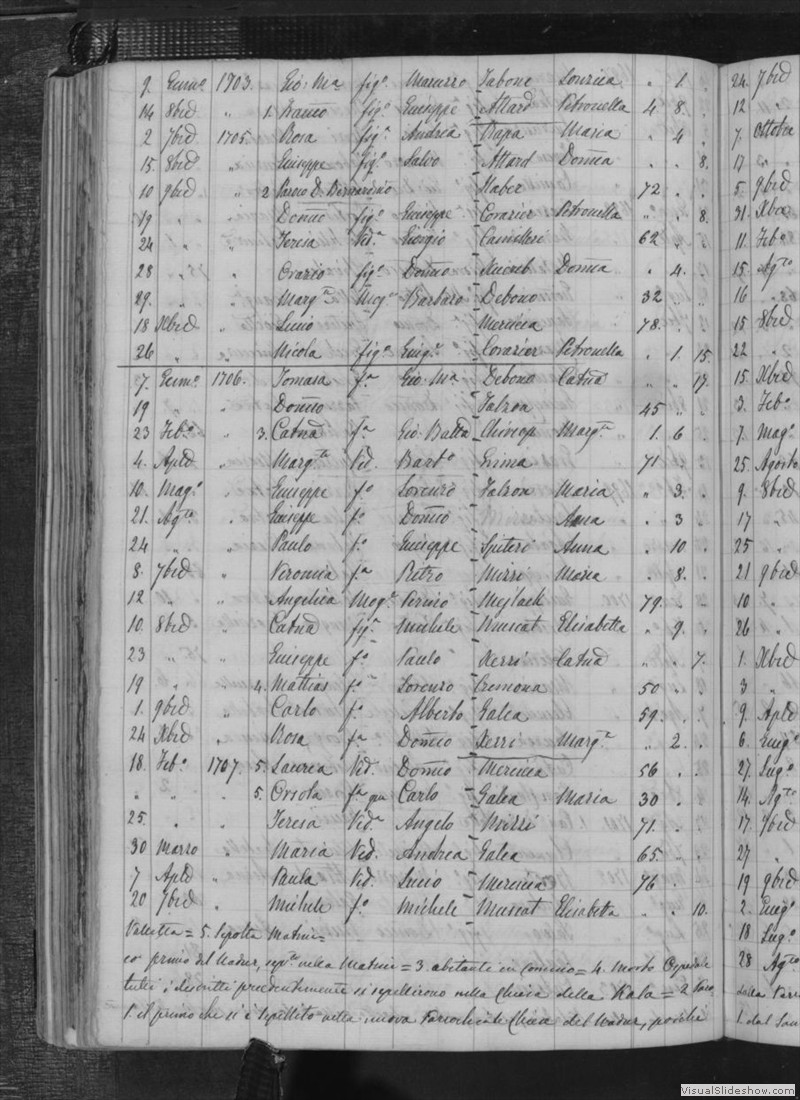 9. Genn.º 1703. Gio: M.a fig.º Marurro Tabone Lourica " 1.
14 8bid " 1. Franco fig.º Giuseppe Attard Petronella 4 8.
2 7bid 1705. Rosa fig.a Andrea Rapa Maria . 4.
15. 8bid " Giuseppe fig.º Salvo Attard Domca . . 8.
10 9bid " 2 Paroco D. Bernardino Haber 72. .
19 " " Domco fig.º Giuseppe Petronella " . 8.
24 " " Teresa Vid.a Giorgio Camilleri 62. .
28 " " Orazio fig.º Domco Xuereb Domca . 4.
29. " " Marg.ta Mog.e Barbaro Debono 32 . .
18 Xbid " Lucio Mercieca 78. .
26 " " Nicola fig.º Eug.º Petronella . 1. 15.
7. Genn.º 1706. Tomasa f.a Gio: M.a Debono Catna " . 17.
19 " " Domco Falzon 45 " .
23 Feb.º " 3. Catna f.a Gio Batta Marg.ta 1. 6
4. Aple " Marg.ta Vid. Bart.º Grima 71. .
10. Mag.º " Giuseppe f.º Lorenzo Falzon Maria " 3.
21. Ag.to " Giuseppe f.º Domco Anna . 3
24 " " Paulo f.º Giuseppe Spiteri Anna . 10 .
8. 7bid " Veronica f.a Pietro Mizzi Maria . 8.
12 " " Angelica Mog.e Perino Mejlach 79. .
10. 8bid " Catna fig.a Michele Muscat Elisabetta . 9.
23 " " Giuseppe f.º Paulo Xerri Catna " . 7.
19 " 4. Mattias f.º Lorenzo Cremona 50 . .
1. 9bid " Carlo f.º Alberto Galea 59. .
24 Xbid " Rosa f.a Domco Xerri Marg.a " 2.
18. Feb.º 1707. 5. Laurica Vid. Domco Mercieca 56 .
" " " 5. Orsola f.a qm Carlo Galea Maria 30 . .
25. " " Teresa Vid.a Angelo Mizzi 71. .
30 Marzo " Maria Vid. Andrea Galea 65. .
7 Aple " Paula Vid. Lucio Mercieca 76 .
20 7bid " Michele f.º Michele Muscat Elisabetta " . 10.
Valletta = 5. Sepolta Matrice
primo del Nadur, sep.to nella Matrice = 3. abitante in Comino = 4. Morto Ospedale
tutti i descritti precedentemente si seppellirono nella Chiesa della Kala = 2
1. il primo che si è seppellito nella nuova Parrochiale Chiesa del Nadur, poichè
24. 7bid
12 "
7. Ottobre
17 "
5. 9bid
31. Xbre
11. Feb.º
15. Ag.to
16 "
15. 8bid
22 "
15. Xbid
3. Feb.º
7. Mag.º
25. Agosto
9. 8bid
17 "
25. "
21 9bid
10. "
26 "
1. Xbid
3 "
9. Aple
6. Giug.º
27. Lug.º
14. Ag.to
17. 7bid
27 "
19 9bid
2. Giug.º
18 Lug.º
28 Ag.to
dalla
1. dal
VisualSlideshow.com